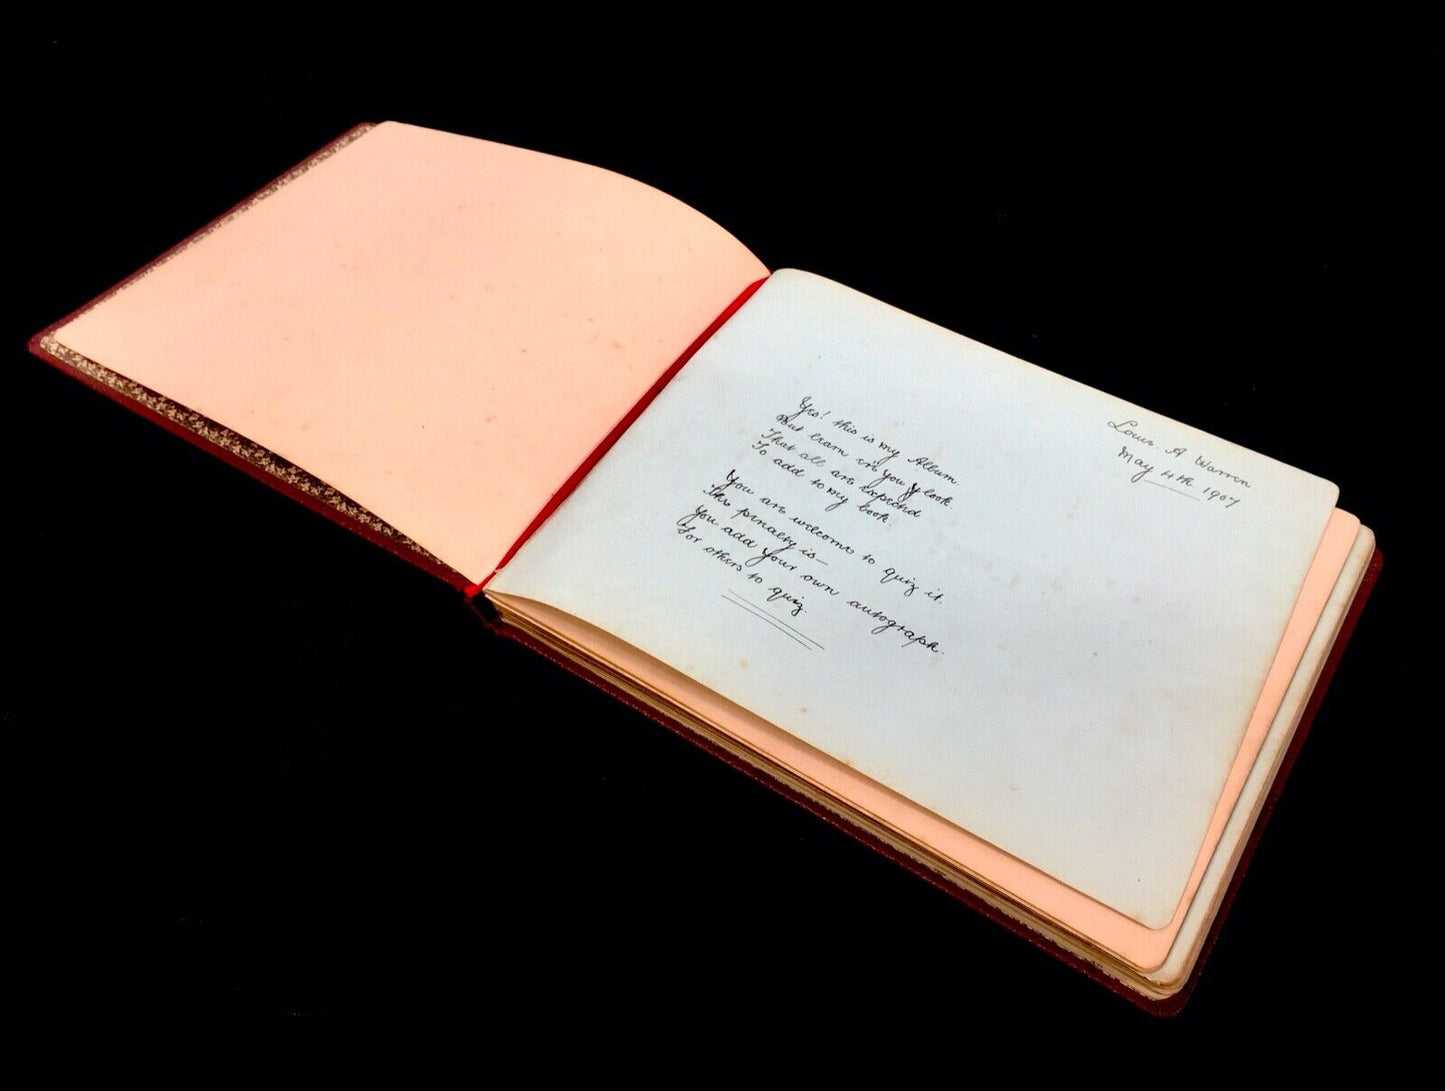 Louis. A Warren
May 4th 1907
Yes! this is my Album.
But learn ere you look.
That all are expected
To add to my book.
You are welcome to quiz it.
The penalty is—
You add your own autograph.
For others to quiz.